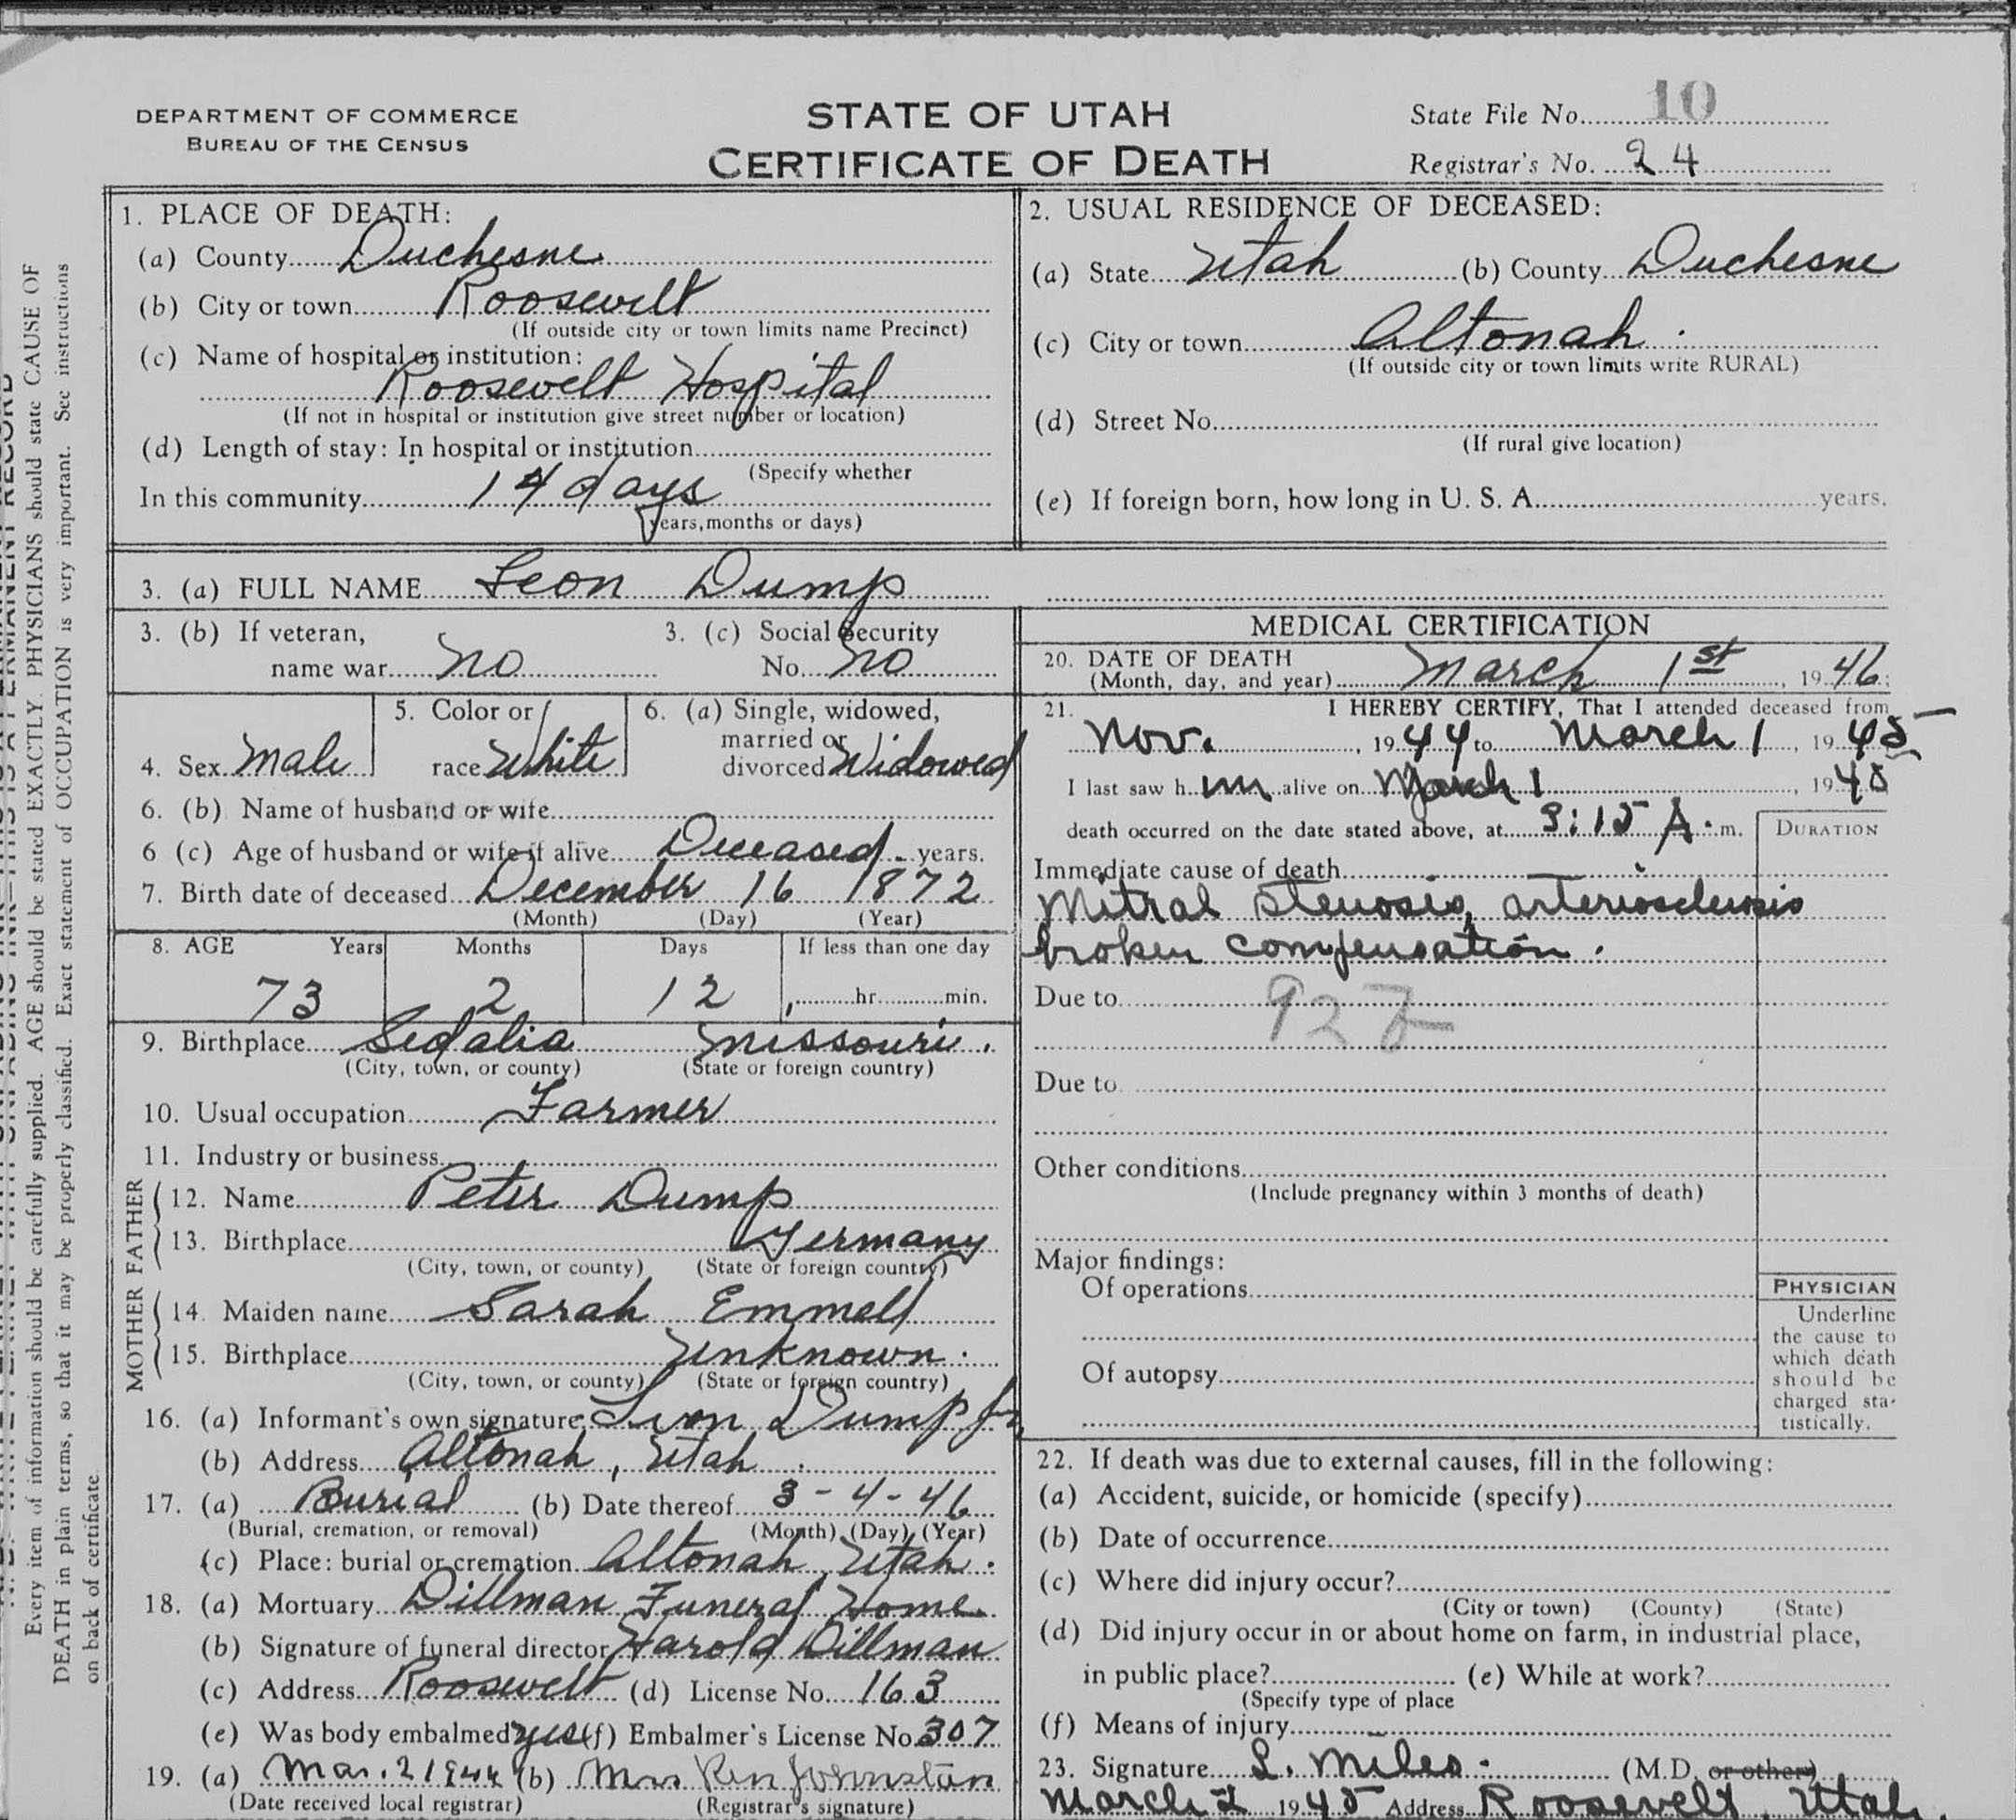 DEPARTMENT OF COMMERCE
BUREAU OF THE CENSUS
STATE OF UTAH
CERTIFICATE OF DEATH
State File No. 10
Registrar's No. 24
1. PLACE OF DEATH:
(a) County Duchesne
(b) City or town Roosevelt
(If outside city or town limits name Precinct)
(c) Name of hospital or institution:
Roosevelt Hospital
(If not in hospital or institution give street number or location)
(d) Length of stay: In hospital or institution
(Specify whether
In this community 14 days
years, months or days)
2. USUAL RESIDENCE OF DECEASED:
(a) State Utah (b) County Duchesne
(c) City or town Altonah
(If outside city or town limits write RURAL)
(d) Street No.
(If rural give location)
(e) If foreign born, how long in U. S. A. years.
3. (a) FULL NAME Leon Dump
3. (b) If veteran, name war No
3. (c) Social Security No. No
4. Sex Male
5. Color or race White
6. (a) Single, widowed, married or divorced Widowed
6. (b) Name of husband or wife
6 (c) Age of husband or wife if alive Deceased years.
7. Birth date of deceased December 16 1872
(Month) (Day) (Year)
8. AGE Years Months Days If less than one day
73 2 12 hr. min.
9. Birthplace Sedalia Missouri.
(City, town, or county) (State or foreign country)
10. Usual occupation Farmer
11. Industry or business
FATHER
12. Name Peter Dump
13. Birthplace Germany
(City, town, or county) (State or foreign country)
MOTHER
14. Maiden name Sarah Emmell
15. Birthplace Unknown.
(City, town, or county) (State or foreign country)
16. (a) Informant's own signature: Leon Dump Jr
(b) Address Altonah, Utah.
17. (a) Burial (b) Date thereof 3-4-46
(Burial, cremation, or removal) (Month) (Day) (Year)
(c) Place: burial or cremation Altonah, Utah.
18. (a) Mortuary Dillman Funeral Home.
(b) Signature of funeral director Harold Dillman
(c) Address Roosevelt (d) License No. 163
(e) Was body embalmed yes (f) Embalmer's License No. 307
19. (a) Mar. 2 (b) Mrs Johnston
(Date received local registrar) (Registrar's signature)
MEDICAL CERTIFICATION
20. DATE OF DEATH
(Month, day, and year) March 1st, 1946.
21. I HEREBY CERTIFY, That I attended deceased from
Nov. , 1944 to March 1, 1945
I last saw him alive on March 1, 1945
death occurred on the date stated above, at 3:15 A.m.
DURATION
Immediate cause of death
Mitral stenosis, arteriosclerosis
broken compensation.
Due to
Due to
Other conditions
(Include pregnancy within 3 months of death)
Major findings:
Of operations
Of autopsy
PHYSICIAN
Underline
the cause to
which death
should be
charged sta-
tistically.
22. If death was due to external causes, fill in the following:
(a) Accident, suicide, or homicide (specify)
(b) Date of occurrence
(c) Where did injury occur?
(City or town) (County) (State)
(d) Did injury occur in or about home on farm, in industrial place,
in public place? (e) While at work?
(Specify type of place
(f) Means of injury
23. Signature L. Miles. (M.D. or other)
March 2 1945 Address Roosevelt, Utah
Every item of information should be carefully supplied. AGE should be stated EXACTLY. PHYSICIANS should state CAUSE OF
DEATH in plain terms, so that it may be properly classified. Exact statement of OCCUPATION is very important. See instructions
on back of certificate.